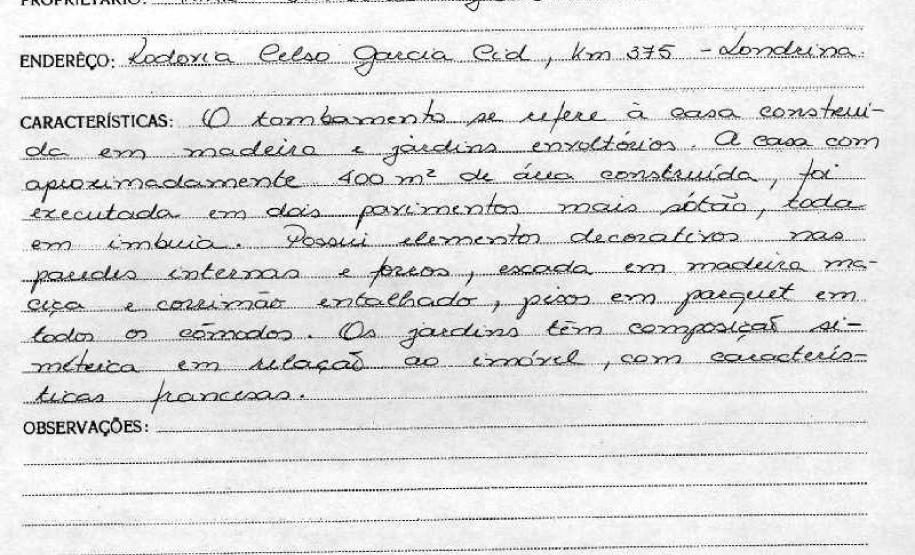 PROPRIETÁRIO:
ENDERÊÇO: Rodovia Celso Garcia Cid, km 375 - Londrina.
CARACTERÍSTICAS: O tombamento se refere à casa construi-
da em madeira e jardins envoltórios. A casa com
aproximadamente 400 m² de área construída, foi
executada em dois pavimentos mais sótão, toda
em imbuia. Possui elementos decorativos nas
paredes internas e forros, escada em madeira ma-
ciça e corrimão entalhado, pisos em parquet em
todos os cômodos. Os jardins têm composição si-
métrica em relação ao imóvel, com caracterís-
ticas francesas.
OBSERVAÇÕES: